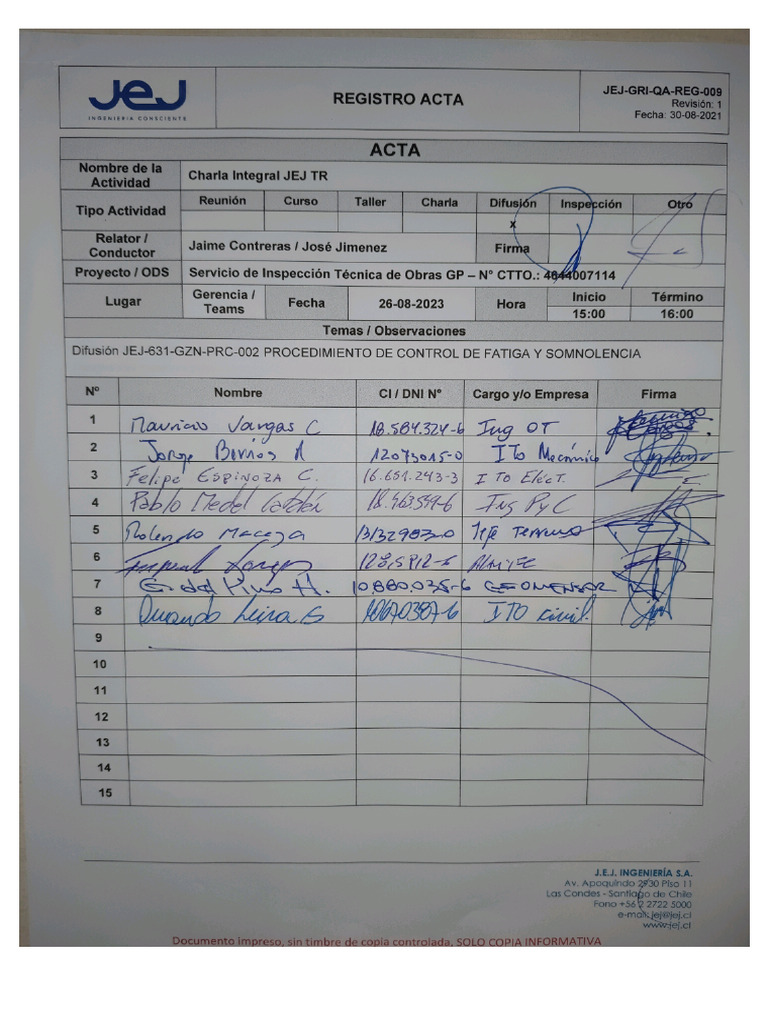 JeJ
INGENIERIA CONSCIENTE
REGISTRO ACTA
JEJ-GRI-QA-REG-009
Revisión: 1
Fecha: 30-08-2021
ACTA
Nombre de la Actividad Charla Integral JEJ TR
Tipo Actividad Reunión Curso Taller Charla Difusión Inspección Otro
x
Relator / Conductor Jaime Contreras / José Jimenez Firma
Proyecto / ODS Servicio de Inspección Técnica de Obras GP – N° CTTO.: 4644007114
Lugar Gerencia / Teams Fecha 26-08-2023 Hora Inicio Término
15:00 16:00
Temas / Observaciones
Difusión JEJ-631-GZN-PRC-002 PROCEDIMIENTO DE CONTROL DE FATIGA Y SOMNOLENCIA
Nº Nombre CI / DNI N° Cargo y/o Empresa Firma
1 Mauricio Vargas C 18.584.324-6 Ing OT
2 Jorge Barrios 12073015-0 ITo Mecánico
3 Felipe ESPINOZA C. 16.651.243-3 I TO Elect.
4 Pablo Medel Ing PyC
5 Rolando
6
7 10.880.035-6 GEOMENSOR
8 ITO civil.
9
10
11
12
13
14
15
J.E.J. INGENIERÍA S.A.
Av. Apoquindo 2930 Piso 11
Las Condes - Santiago de Chile
Fono +56 2 2722 5000
e-mail: jej@jej.cl
www.jej.cl
Documento impreso, sin timbre de copia controlada, SOLO COPIA INFORMATIVA